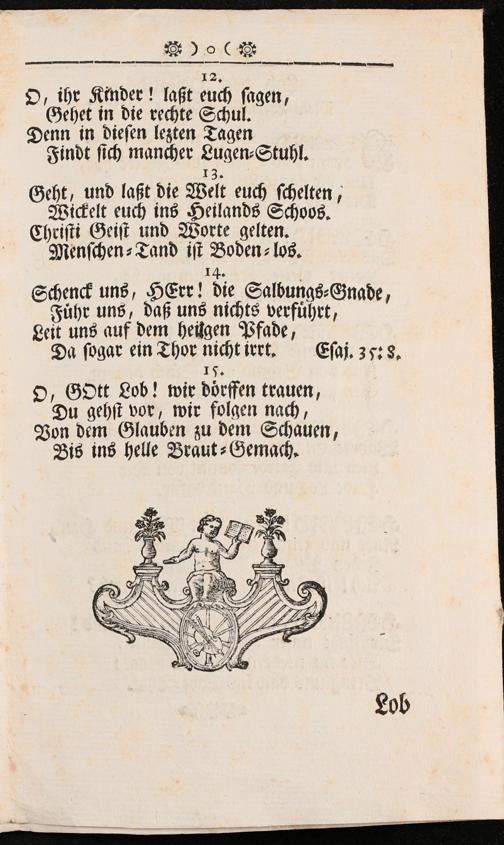 ) o (
12.
O, ihr Kinder! laßt euch sagen,
Gehet in die rechte Schul.
Denn in diesen lezten Tagen
Findt sich mancher Lugen-Stuhl.
13.
Geht, und laßt die Welt euch schelten,
Wickelt euch ins Heilands Schoos.
Christi Geist und Worte gelten.
Menschen-Tand ist Boden-los.
14.
Schenck uns, HErr! die Salbungs-Gnade,
Führ uns, daß uns nichts verführt,
Leit uns auf dem heilgen Pfade,
Da sogar ein Thor nicht irrt. Esaj. 35:8.
15.
O, GOtt Lob! wir dörffen trauen,
Du gehst vor, wir folgen nach,
Von dem Glauben zu dem Schauen,
Bis ins helle Braut-Gemach.
Lob